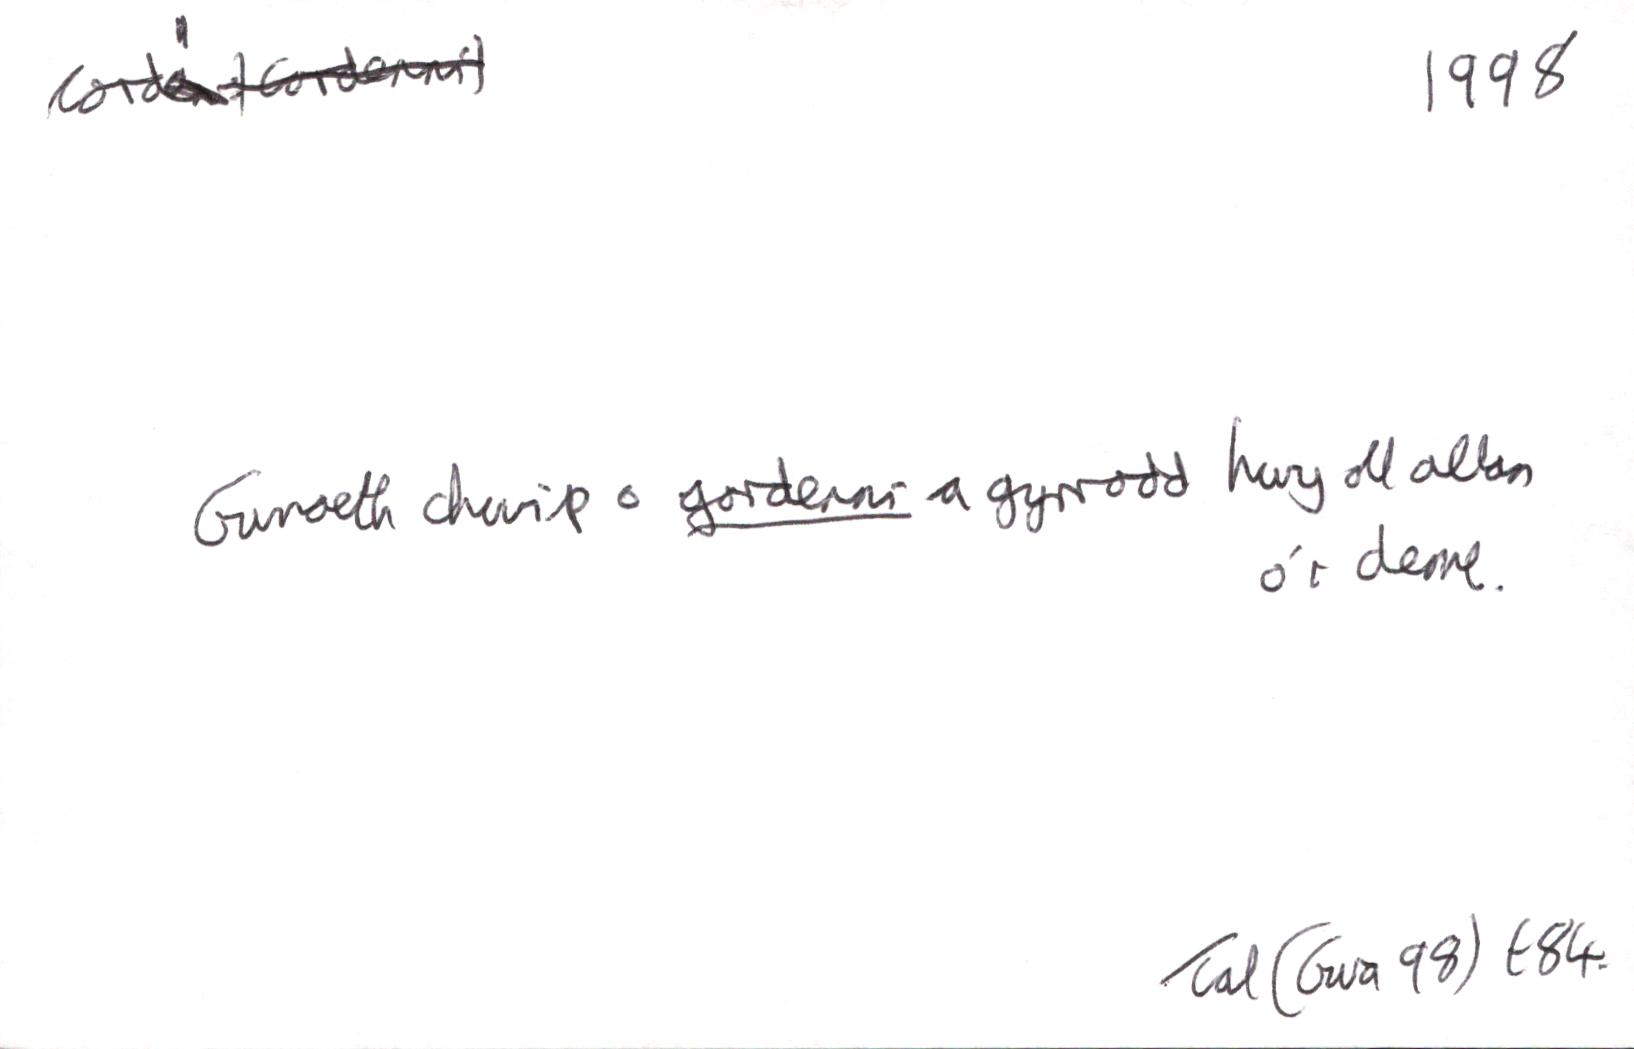 1998
Gwnaeth chwip o gordenni a gyrrodd hwy oll allan
o'r deml.
Tal (Gwa 98) t84.